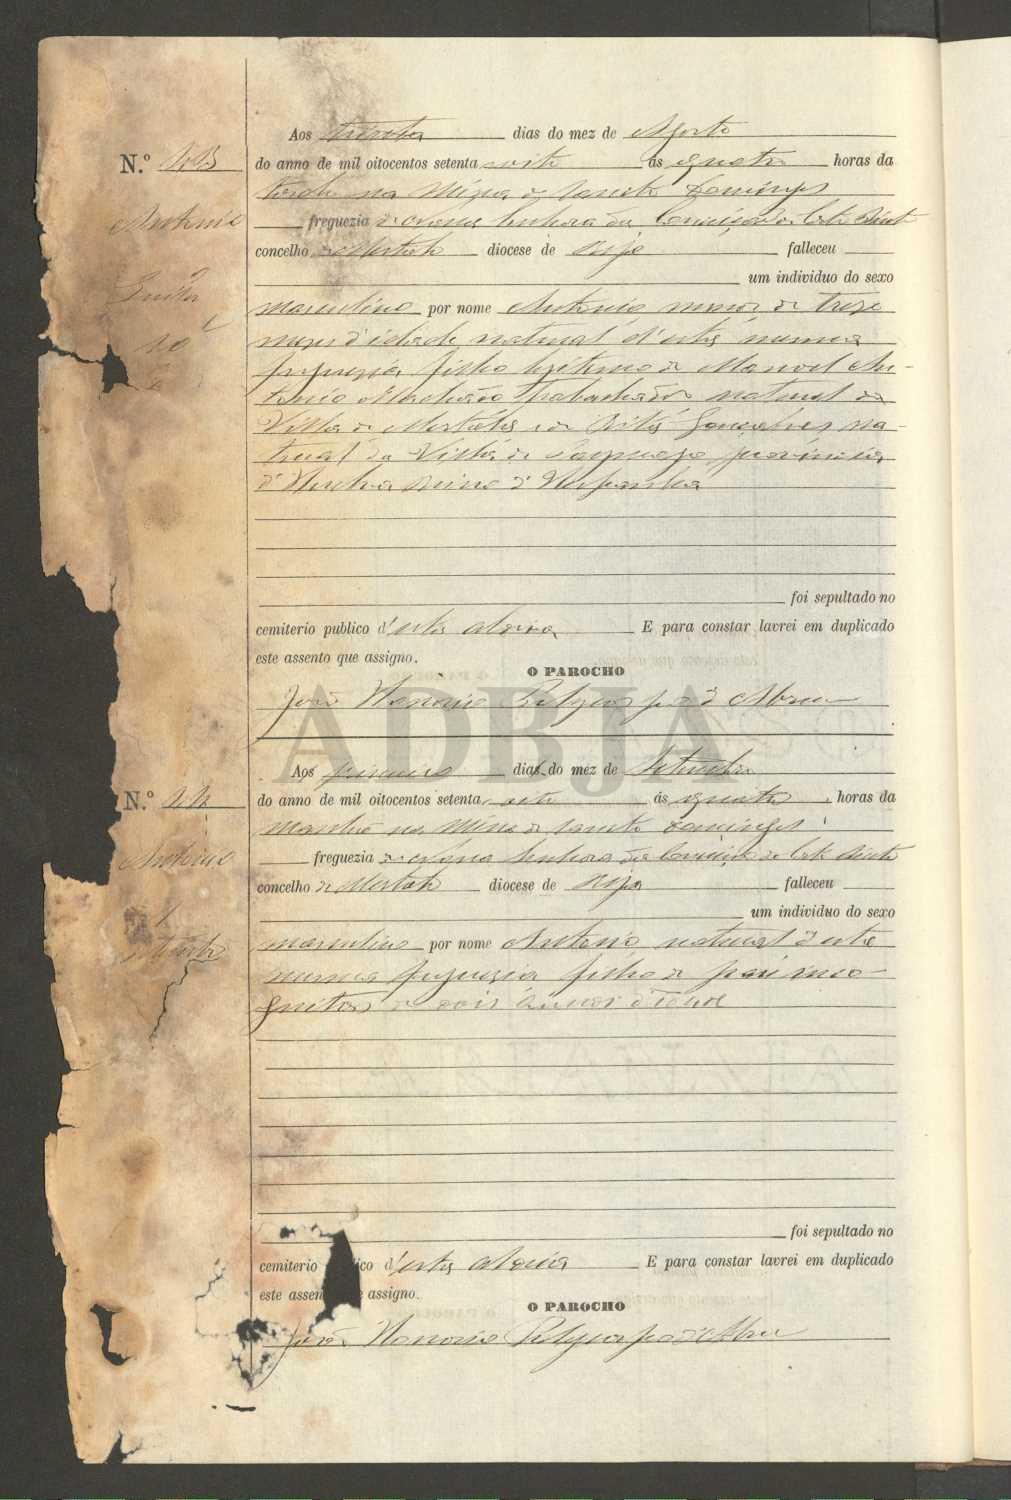 Aos trinta dias do mez de Agosto
N.º
do anno de mil oitocentos setenta oito ás quatro horas da
tarde na Mina de Sam Domingos
Antonio
freguezia de Nossa Senhora da Conceição
concelho de Mertola diocese de Beja falleceu
um individuo do sexo
masculino por nome Antonio menor de treze
mezes d'idade natural d'esta mesma
freguezia filho legitimo de Manoel An-
tonio trabalhador natural da
Villa de Mertola e de Rita Gonçalves na-
tural da Villa de provincia
d'Huelva Reino d'Hespanha
foi sepultado no
cemiterio publico d'esta aldeia E para constar lavrei em duplicado
este assento que assigno.
O PAROCHO
João d'Abreu
ADBJA
Aos primeiro dias do mez de Setembro
N.º
do anno de mil oitocentos setenta oito ás quatro horas da
manhã na Mina de Sam Domingos
Antonio
freguezia de Nossa Senhora da Conceição
concelho de Mertola diocese de Beja falleceu
um individuo do sexo
masculino por nome Antonio natural d'esta
mesma freguezia filho de pais inco-
gnitos de dois annos d'idade
foi sepultado no
cemiterio publico d'esta aldeia E para constar lavrei em duplicado
este assento que assigno.
O PAROCHO
João d'Abreu